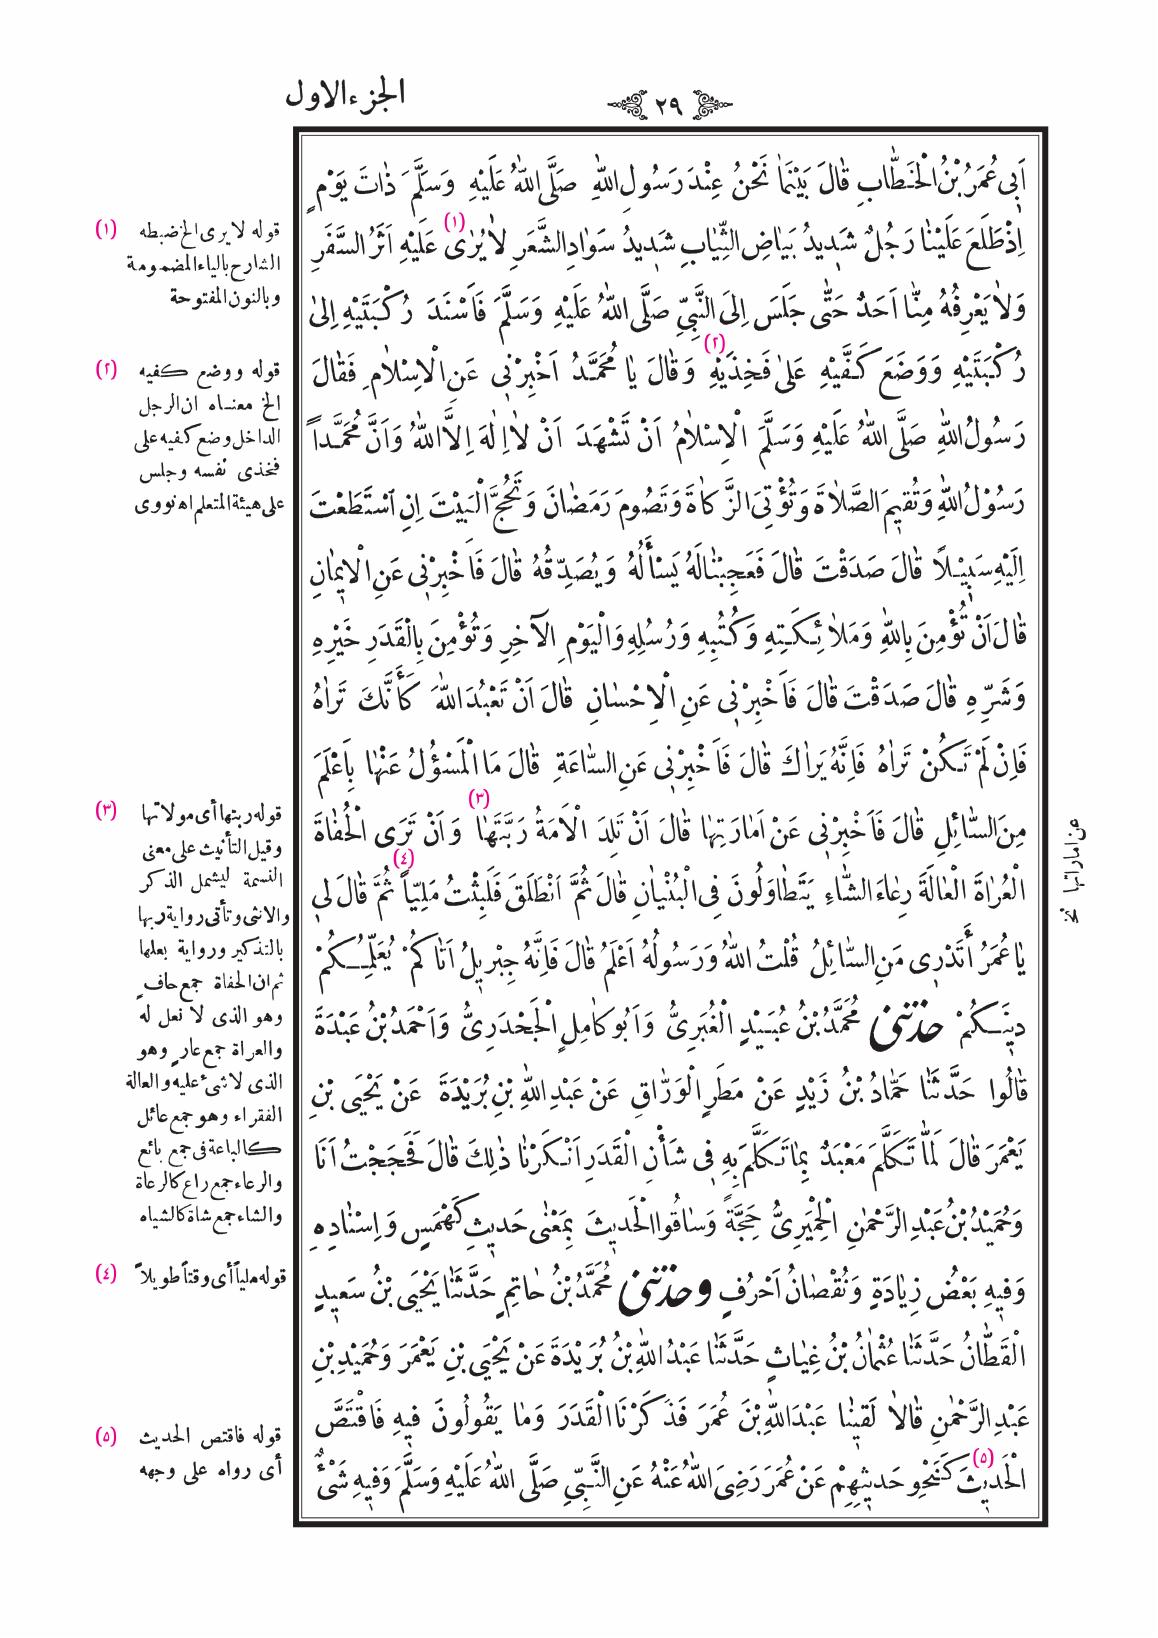 الجزء الاول
٢٩
اَبِى عُمَرُ بْنُ الْخَطَّابِ قَالَ بَيْنَمَا نَحْنُ عِنْدَ رَسُولِ اللّٰهِ صَلَّى اللّٰهُ عَلَيْهِ وَسَلَّمَ ذَاتَ يَوْمٍ
اِذْ طَلَعَ عَلَيْنَا رَجُلٌ شَدِيدُ بَيَاضِ الثِّيَابِ شَدِيدُ سَوَادِ الشَّعَرِ لَا يُرٰى (١) عَلَيْهِ اَثَرُ السَّفَرِ
وَلَا يَعْرِفُهُ مِنَّا اَحَدٌ حَتّٰى جَلَسَ اِلَى النَّبِيِّ صَلَّى اللّٰهُ عَلَيْهِ وَسَلَّمَ فَاَسْنَدَ رُكْبَتَيْهِ اِلٰى
رُكْبَتَيْهِ وَوَضَعَ كَفَّيْهِ عَلٰى فَخِذَيْهِ (٢) وَقَالَ يَا مُحَمَّدُ اَخْبِرْنِى عَنِ الْاِسْلَامِ فَقَالَ
رَسُولُ اللّٰهِ صَلَّى اللّٰهُ عَلَيْهِ وَسَلَّمَ الْاِسْلَامُ اَنْ تَشْهَدَ اَنْ لَا اِلٰهَ اِلَّا اللّٰهُ وَاَنَّ مُحَمَّداً
رَسُولُ اللّٰهِ وَتُقِيمَ الصَّلَاةَ وَتُؤْتِىَ الزَّكَاةَ وَتَصُومَ رَمَضَانَ وَتَحُجَّ الْبَيْتَ اِنِ اسْتَطَعْتَ
اِلَيْهِ سَبِيْلاً قَالَ صَدَقْتَ قَالَ فَعَجِبْنَا لَهُ يَسْأَلُهُ وَيُصَدِّقُهُ قَالَ فَاَخْبِرْنِى عَنِ الْاِيمَانِ
قَالَ اَنْ تُؤْمِنَ بِاللّٰهِ وَمَلَائِكَتِهِ وَكُتُبِهِ وَرُسُلِهِ وَالْيَوْمِ الْآخِرِ وَتُؤْمِنَ بِالْقَدَرِ خَيْرِهِ
وَشَرِّهِ قَالَ صَدَقْتَ قَالَ فَاَخْبِرْنِى عَنِ الْاِحْسَانِ قَالَ اَنْ تَعْبُدَ اللّٰهَ كَأَنَّكَ تَرَاهُ
فَاِنْ لَمْ تَكُنْ تَرَاهُ فَاِنَّهُ يَرَاكَ قَالَ فَاَخْبِرْنِى عَنِ السَّاعَةِ قَالَ مَا الْمَسْؤُلُ عَنْهَا بِاَعْلَمَ
مِنَ السَّائِلِ قَالَ فَاَخْبِرْنِى عَنْ اَمَارَتِهَا قَالَ اَنْ تَلِدَ الْاَمَةُ رَبَّتَهَا (٣) وَاَنْ تَرَى الْحُفَاةَ
الْعُرَاةَ الْعَالَةَ رِعَاءَ الشَّاءِ يَتَطَاوَلُونَ فِى الْبُنْيَانِ قَالَ ثُمَّ انْطَلَقَ فَلَبِثْتُ مَلِيّاً (٤) ثُمَّ قَالَ لِى
يَا عُمَرُ أَتَدْرِى مَنِ السَّائِلُ قُلْتُ اللّٰهُ وَرَسُولُهُ اَعْلَمُ قَالَ فَاِنَّهُ جِبْرِيلُ اَتَاكُمْ يُعَلِّمُكُمْ
دِينَكُمْ حَدَّثَنِى مُحَمَّدُ بْنُ عُبَيْدٍ الْغُبَرِىُّ وَاَبُو كَامِلٍ الْجَحْدَرِىُّ وَاَحْمَدُ بْنُ عَبْدَةَ
قَالُوا حَدَّثَنَا حَمَّادُ بْنُ زَيْدٍ عَنْ مَطَرٍ الْوَرَّاقِ عَنْ عَبْدِ اللّٰهِ بْنِ بُرَيْدَةَ عَنْ يَحْيَى بْنِ
يَعْمَرَ قَالَ لَمَّا تَكَلَّمَ مَعْبَدٌ بِمَا تَكَلَّمَ بِهِ فِى شَأْنِ الْقَدَرِ اَنْكَرْنَا ذٰلِكَ قَالَ فَحَجَجْتُ اَنَا
وَحُمَيْدُ بْنُ عَبْدِ الرَّحْمٰنِ الْحِمْيَرِىُّ حَجَّةً وَسَاقُوا الْحَدِيثَ بِمَعْنٰى حَدِيثِ كَهْمَسٍ وَاِسْنَادِهِ
وَفِيهِ بَعْضُ زِيَادَةٍ وَنُقْصَانُ اَحْرُفٍ وحَدَّثَنِى مُحَمَّدُ بْنُ حَاتِمٍ حَدَّثَنَا يَحْيَى بْنُ سَعِيدٍ
الْقَطَّانُ حَدَّثَنَا عُثْمَانُ بْنُ غِيَاثٍ حَدَّثَنَا عَبْدُ اللّٰهِ بْنُ بُرَيْدَةَ عَنْ يَحْيَى بْنِ يَعْمَرَ وَحُمَيْدِ بْنِ
عَبْدِ الرَّحْمٰنِ قَالَا لَقِينَا عَبْدَ اللّٰهِ بْنَ عُمَرَ فَذَكَرْنَا الْقَدَرَ وَمَا يَقُولُونَ فِيهِ فَاقْتَصَّ
الْحَدِيثَ (٥) كَنَحْوِ حَدِيثِهِمْ عَنْ عُمَرَ رَضِىَ اللّٰهُ عَنْهُ عَنِ النَّبِيِّ صَلَّى اللّٰهُ عَلَيْهِ وَسَلَّمَ وَفِيهِ شَىْءٌ
عن اماراتها نخ
(١) قوله لا يرى الخ ضبطه
الشارح بالياء المضمومة
وبالنون المفتوحة
(٢) قوله ووضع كفيه
الخ معناه ان الرجل
الداخل وضع كفيه على
فخذى نفسه وجلس
على هيئة المتعلم اه نووى
(٣) قوله ربتها أى مولاتها
وقيل التأنيث على معنى
النسمة ليشمل الذكر
والانثى وتأتى رواية ربها
بالتذكير ورواية بعلها
ثم ان الحفاة جمع حافٍ
وهو الذى لا نعل له
والعراة جمع عارٍ وهو
الذى لاشئ عليه والعالة
الفقراء وهو جمع عائل
كالباعة فى جمع بائع
والرعاء جمع راع كالرعاة
والشاء جمع شاة كالشياه
(٤) قوله ملياً أى وقتاً طويلاً
(٥) قوله فاقتص الحديث
أى رواه على وجهه